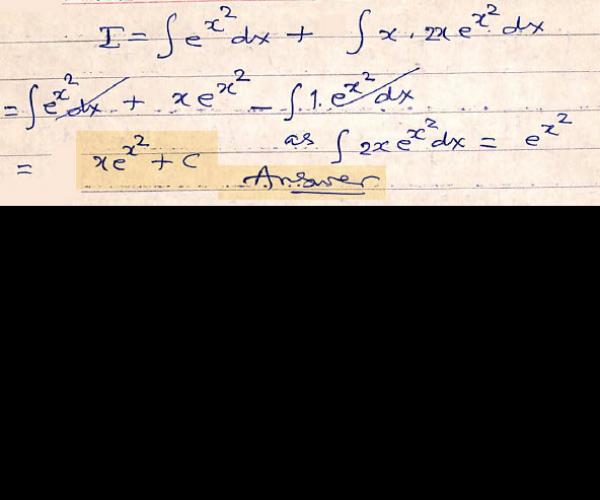 I = ∫ e^{x^2} dx + ∫ x . 2x e^{x^2} dx
= ∫ e^{x^2} dx + x e^{x^2} - ∫ 1. e^{x^2} dx
as ∫ 2x e^{x^2} dx = e^{x^2}
= x e^{x^2} + C
Answer